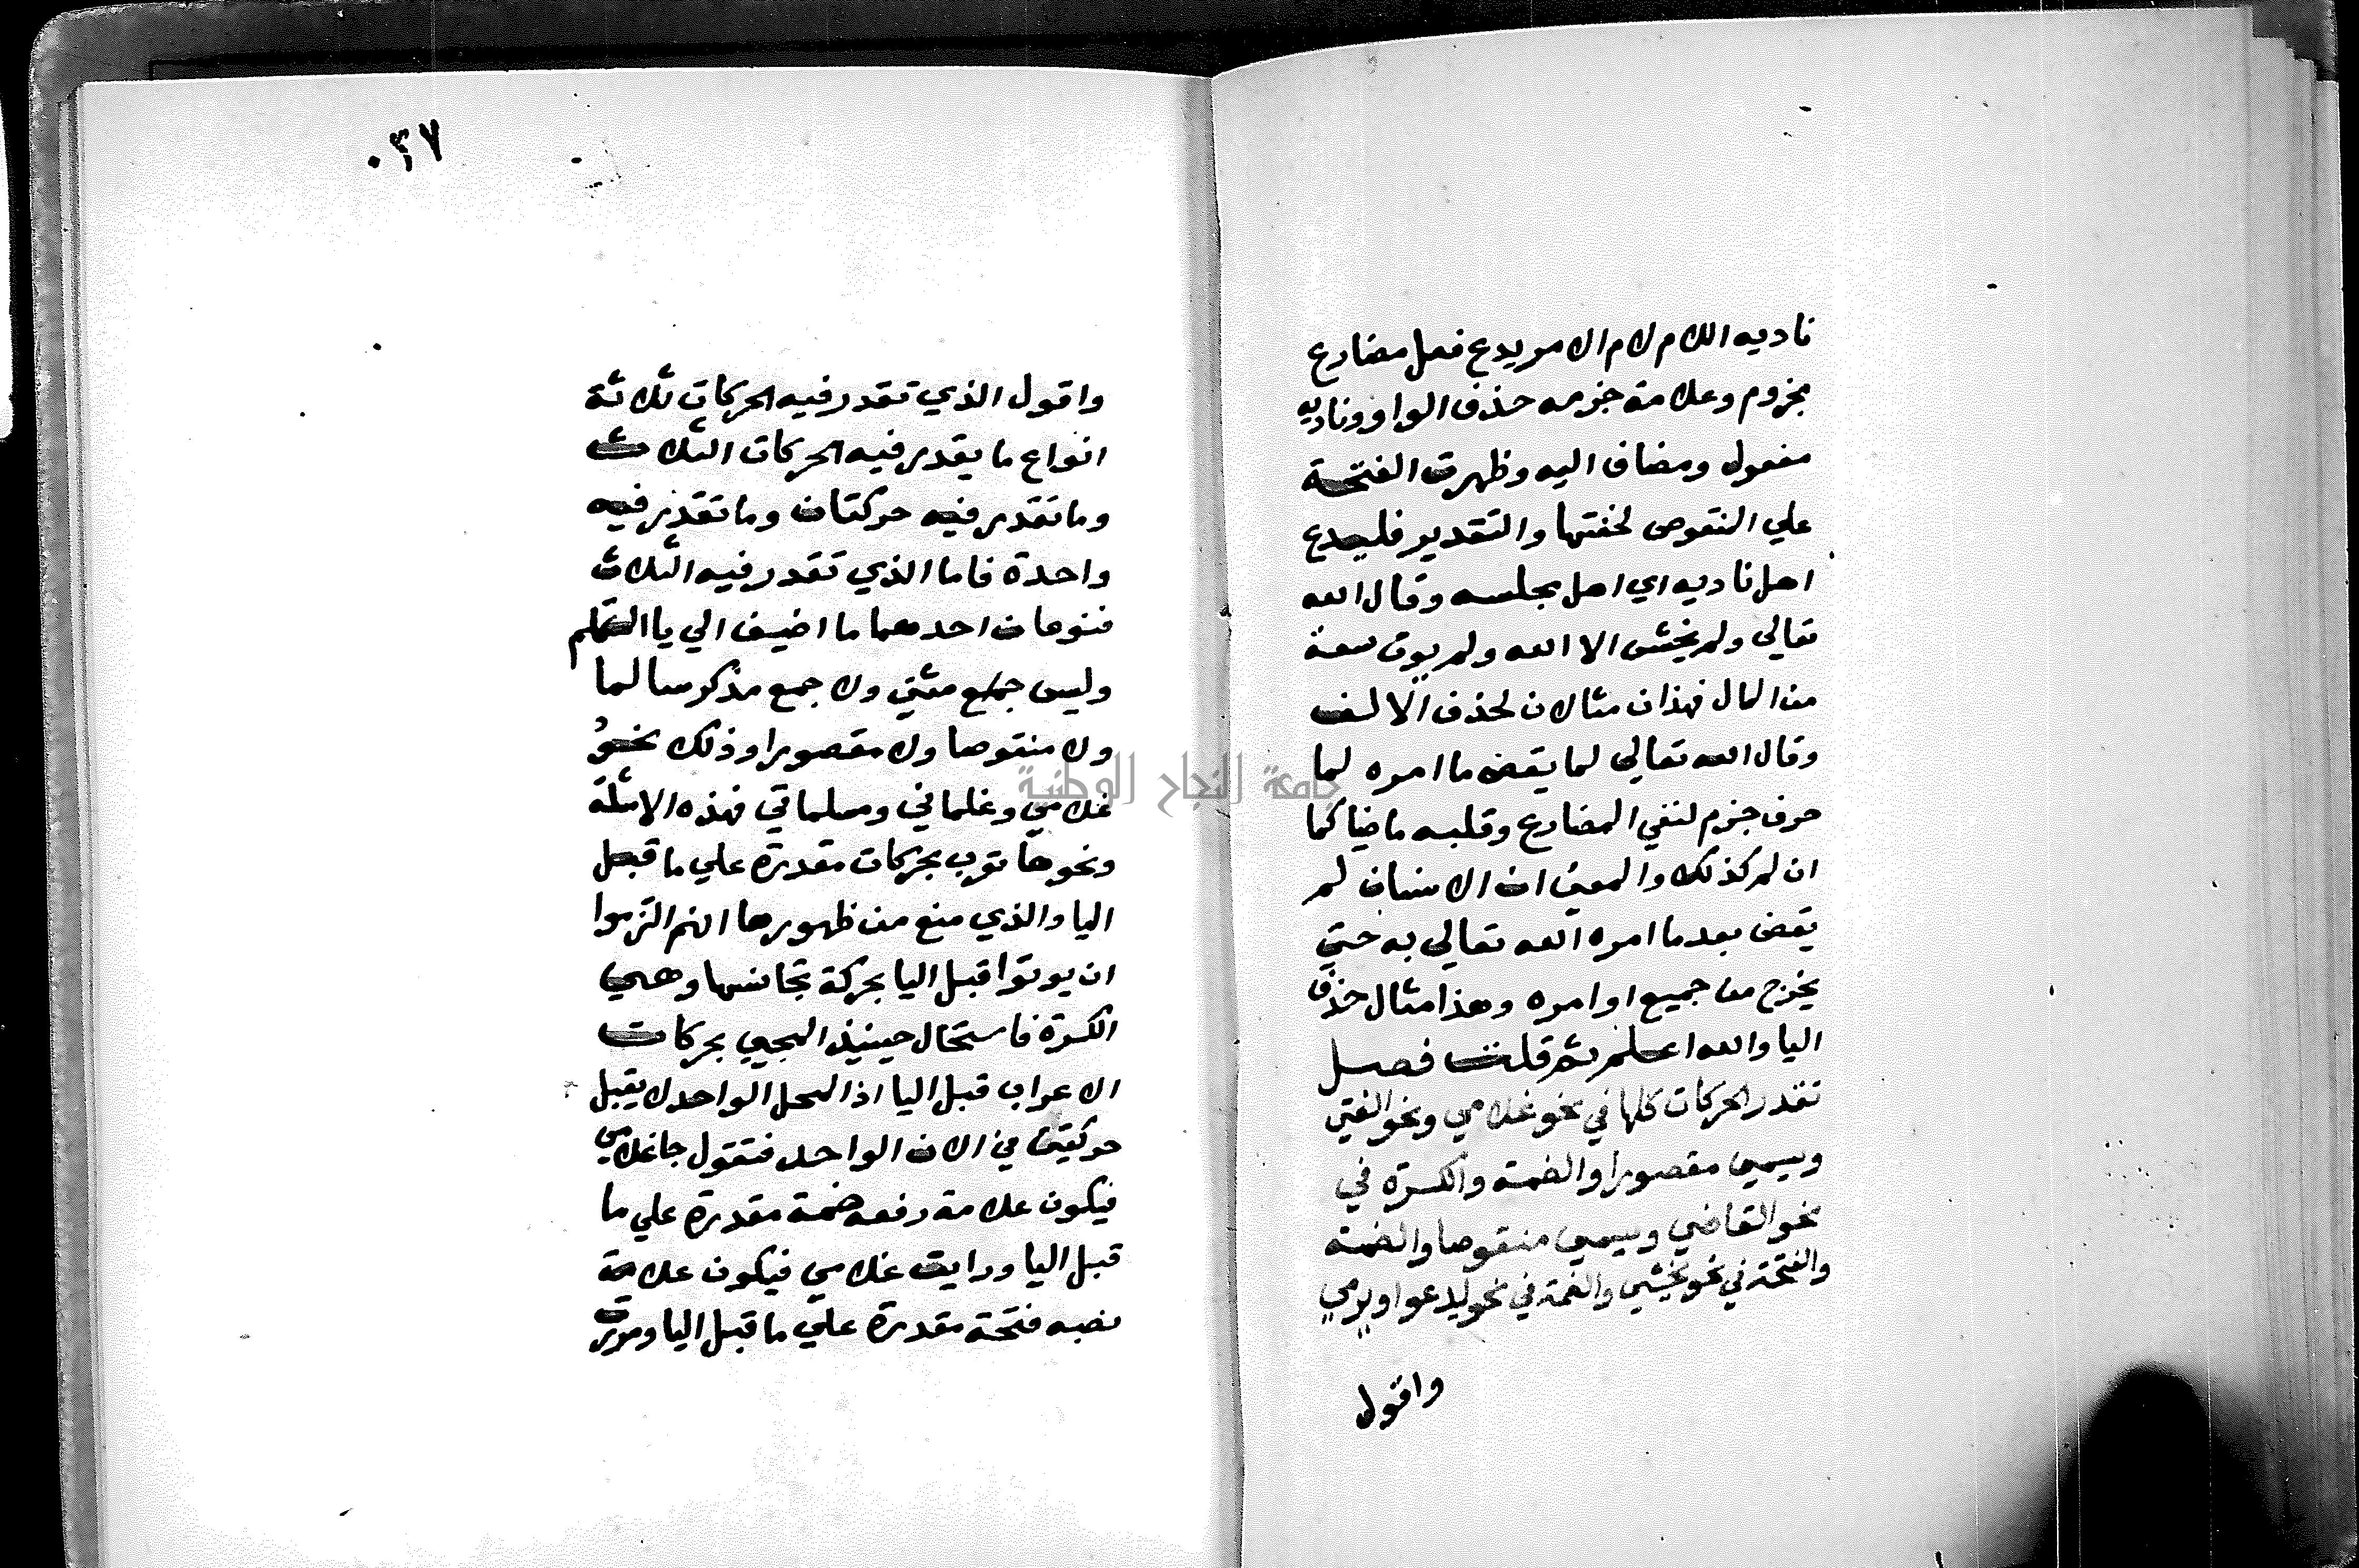 ناديه اللام لام الامر يدع فعل مضارع
مجزوم وعلامة جزمه حذف الواو وناديه
مفعول ومضاف اليه وظهرت الفتحة
علي المنقوص لخفتها والتقدير فليدع
اهل ناديه اي اهل مجلسه وقال الله
تعالي ولم يخش الا الله ولم يوت سعة
من المال فهذان مثالان لحذف الالف
وقال الله تعالي لما يقض ما امره لما
حرف جزم لنفي المضارع وقلبه ماضيا كما
ان لم كذلك والمعني ان الانسان لم
يقض بعد ما امره الله تعالي به حتي
يخرج من جميع اوامره وهذا مثال حذف
اليا والله اعلم ثم قلت فصل
تقدر الحركات كلها في نحو غلامي ونحو الفتي
ويسمي مقصورا والضمة والكسرة في
نحو القاضي ويسمي منقوصا والضمة
والفتحة في نحو يخشي والضمة في نحو يدعوا ويرمي
واقول
٠٣٧
واقول الذي تقدر فيه الحركات ثلاثة
انواع ما يقدر فيه الحركات الثلاث
وما تقدر فيه حركتان وما تقدر فيه
واحدة فاما الذي تقدر فيه الثلاث
فنوعان احدهما ما اضيف الي يا المتكلم
وليس جمع مثني ولا جمع مذكر سالما
ولا منقوصا ولا مقصورا وذلك نحو
غلامي وغلماني ومسلماتي فهذه الامثلة
ونحوها تعرب بحركات مقدرة علي ما قبل
اليا والذي منع من ظهورها انهم التزموا
ان يوتوا قبل اليا بحركة تجانسها وهي
الكسرة فاستحال حينيذ المجيي بحركات
الاعراب قبل اليا اذ المحل الواحد لا يقبل
حركتين في الان الواحد فتقول جا غلامي
فيكون علامة رفعه ضمة مقدرة علي ما
قبل اليا ورايت غلامي فيكون علامة
نصبه فتحة مقدرة علي ما قبل اليا ومررت
جامعة النجاح الوطنية